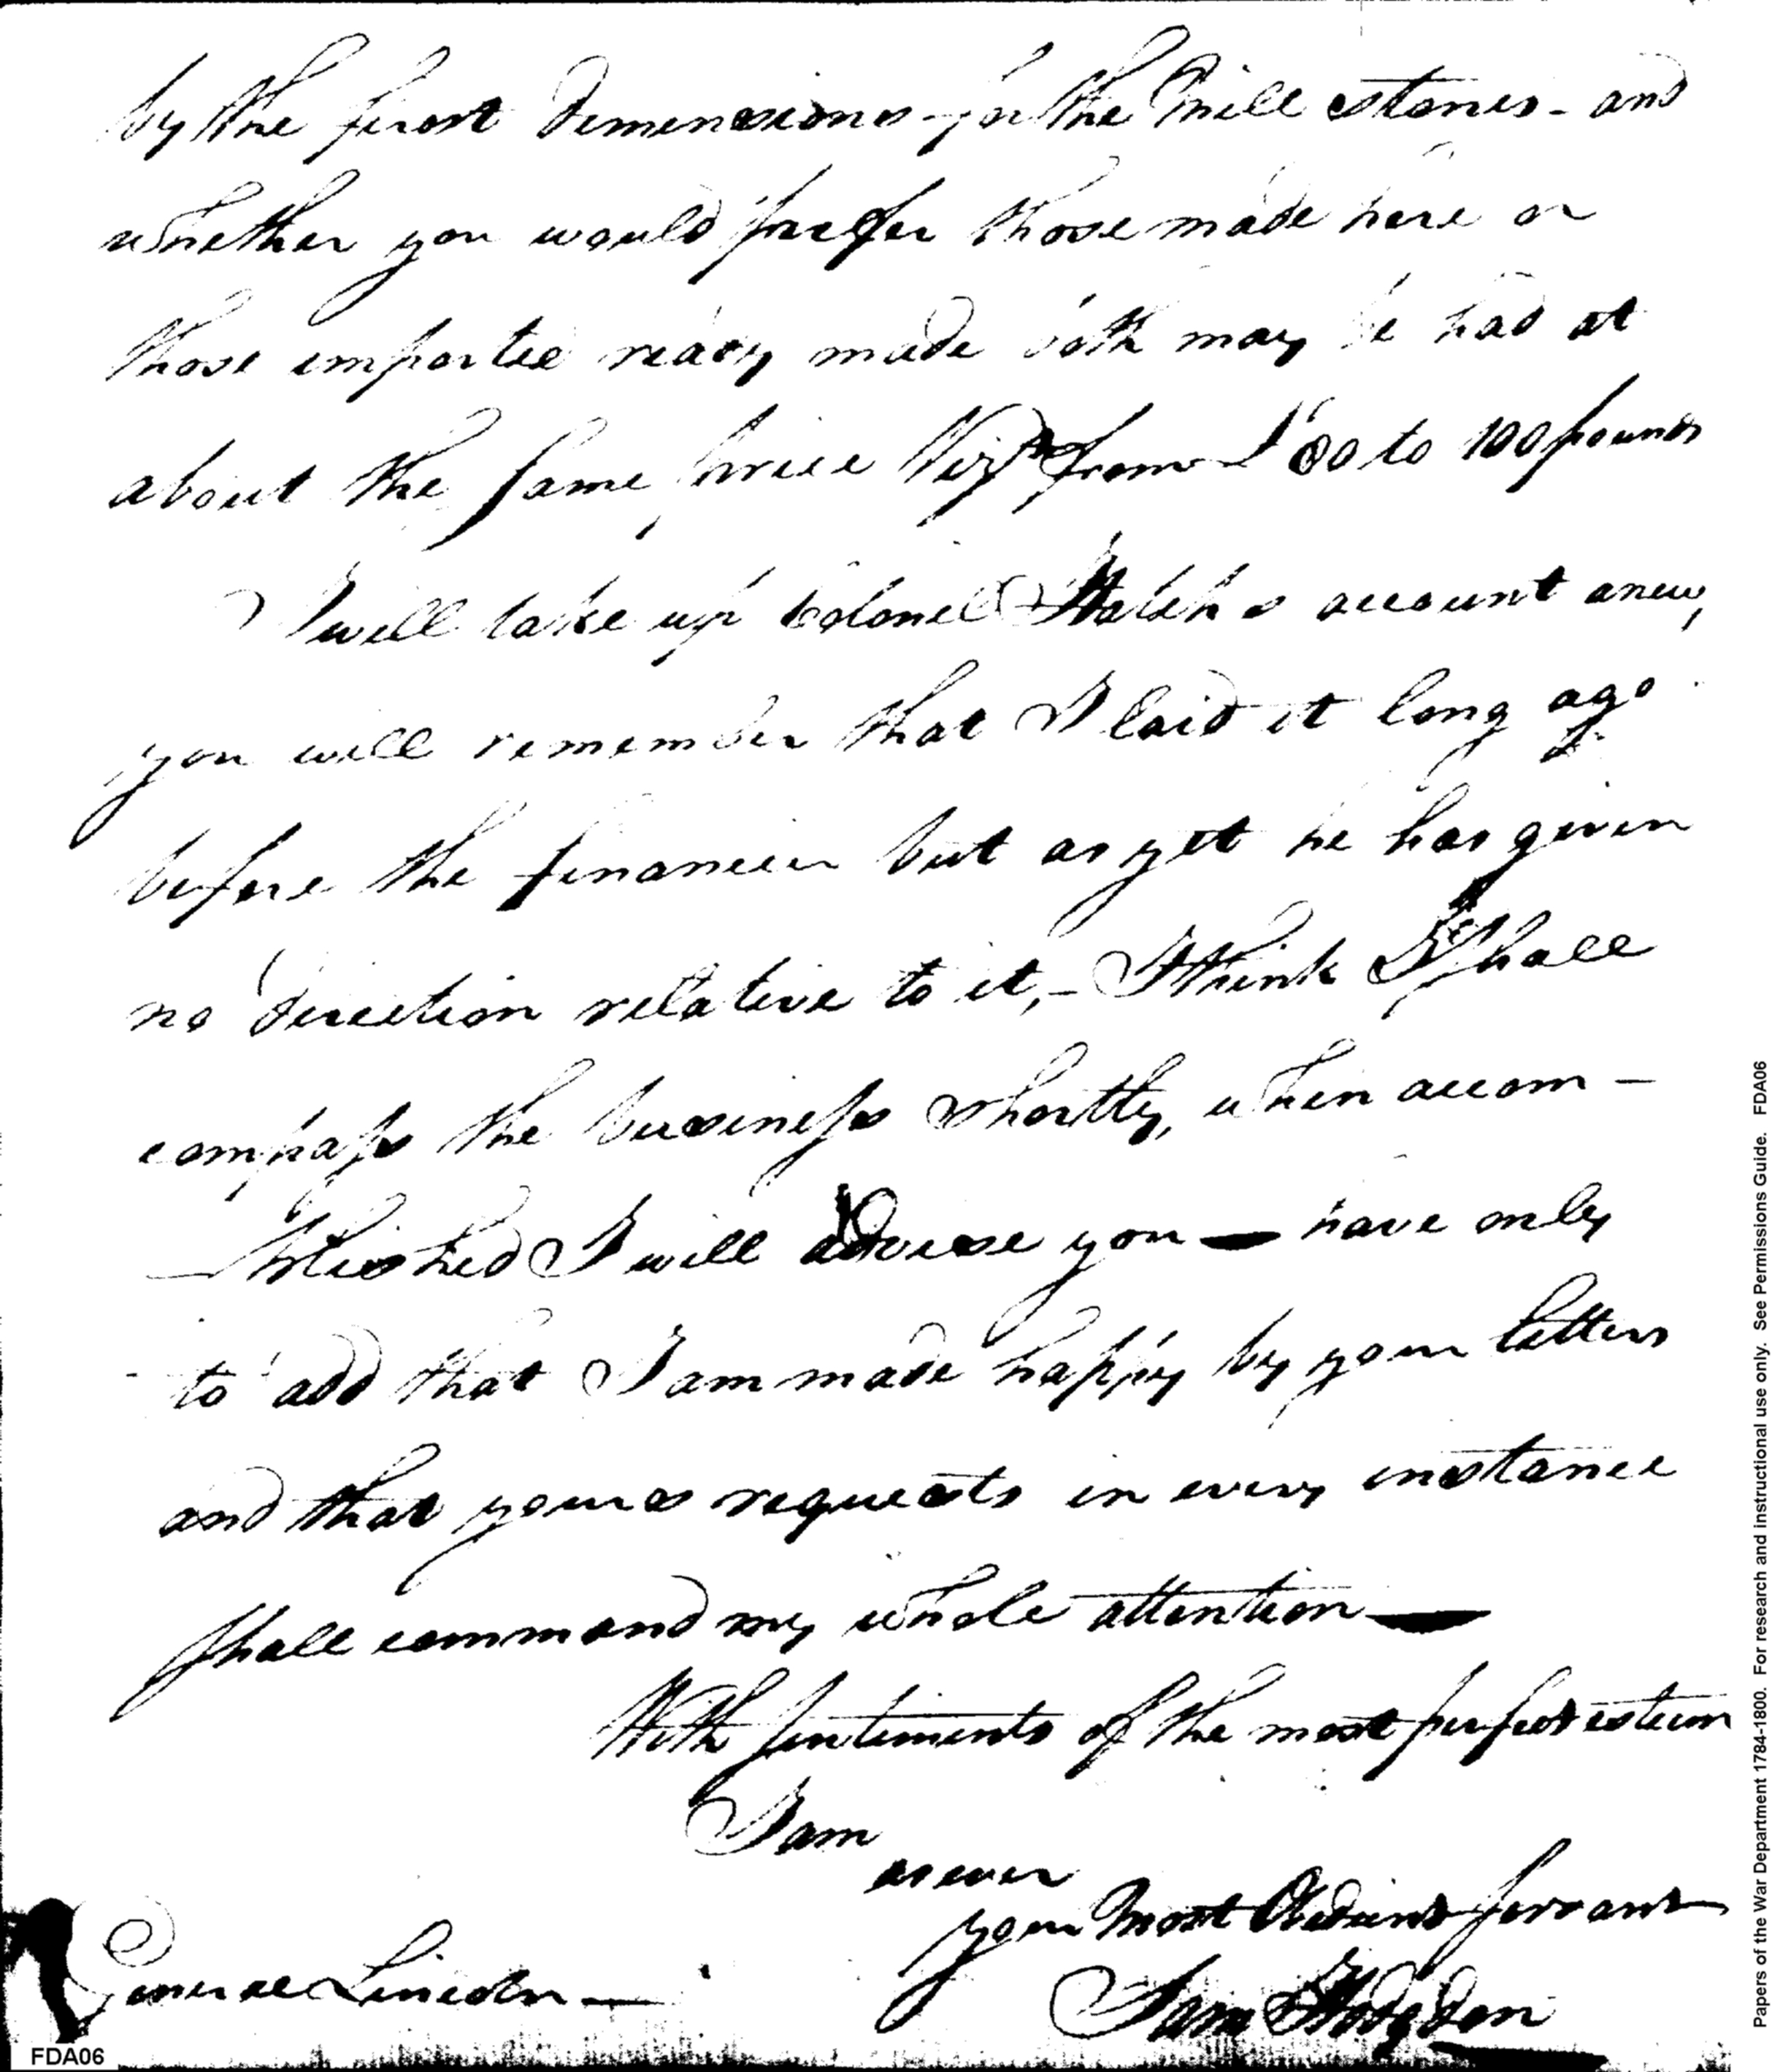 by the first dimensions for the Mill stones - and
whether you would prefer those made here or
those imported ready made both may be had at
about the same price Viz from £80 to 100 pounds
I will take up Colonel Hatch s account anew,
you will remember that I laid it long ago
before the financier but as yet he has given
no direction relative to it, - I think I shall
compass the business shortly, when accom -
- plished I will advise you — have only
to add that I am made happy by your letters
and that yours requests in every instance
shall command my whole attention —
With sentiments of the most perfect esteem
I am
as ever
your most Obedient servant
Sam Hodgdon
General Lincoln —
FDA06
Papers of the War Department 1784-1800. For research and instructional use only. See Permissions Guide. FDA06